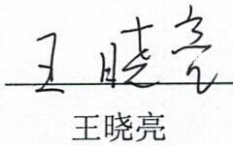 王晓亮
王晓亮